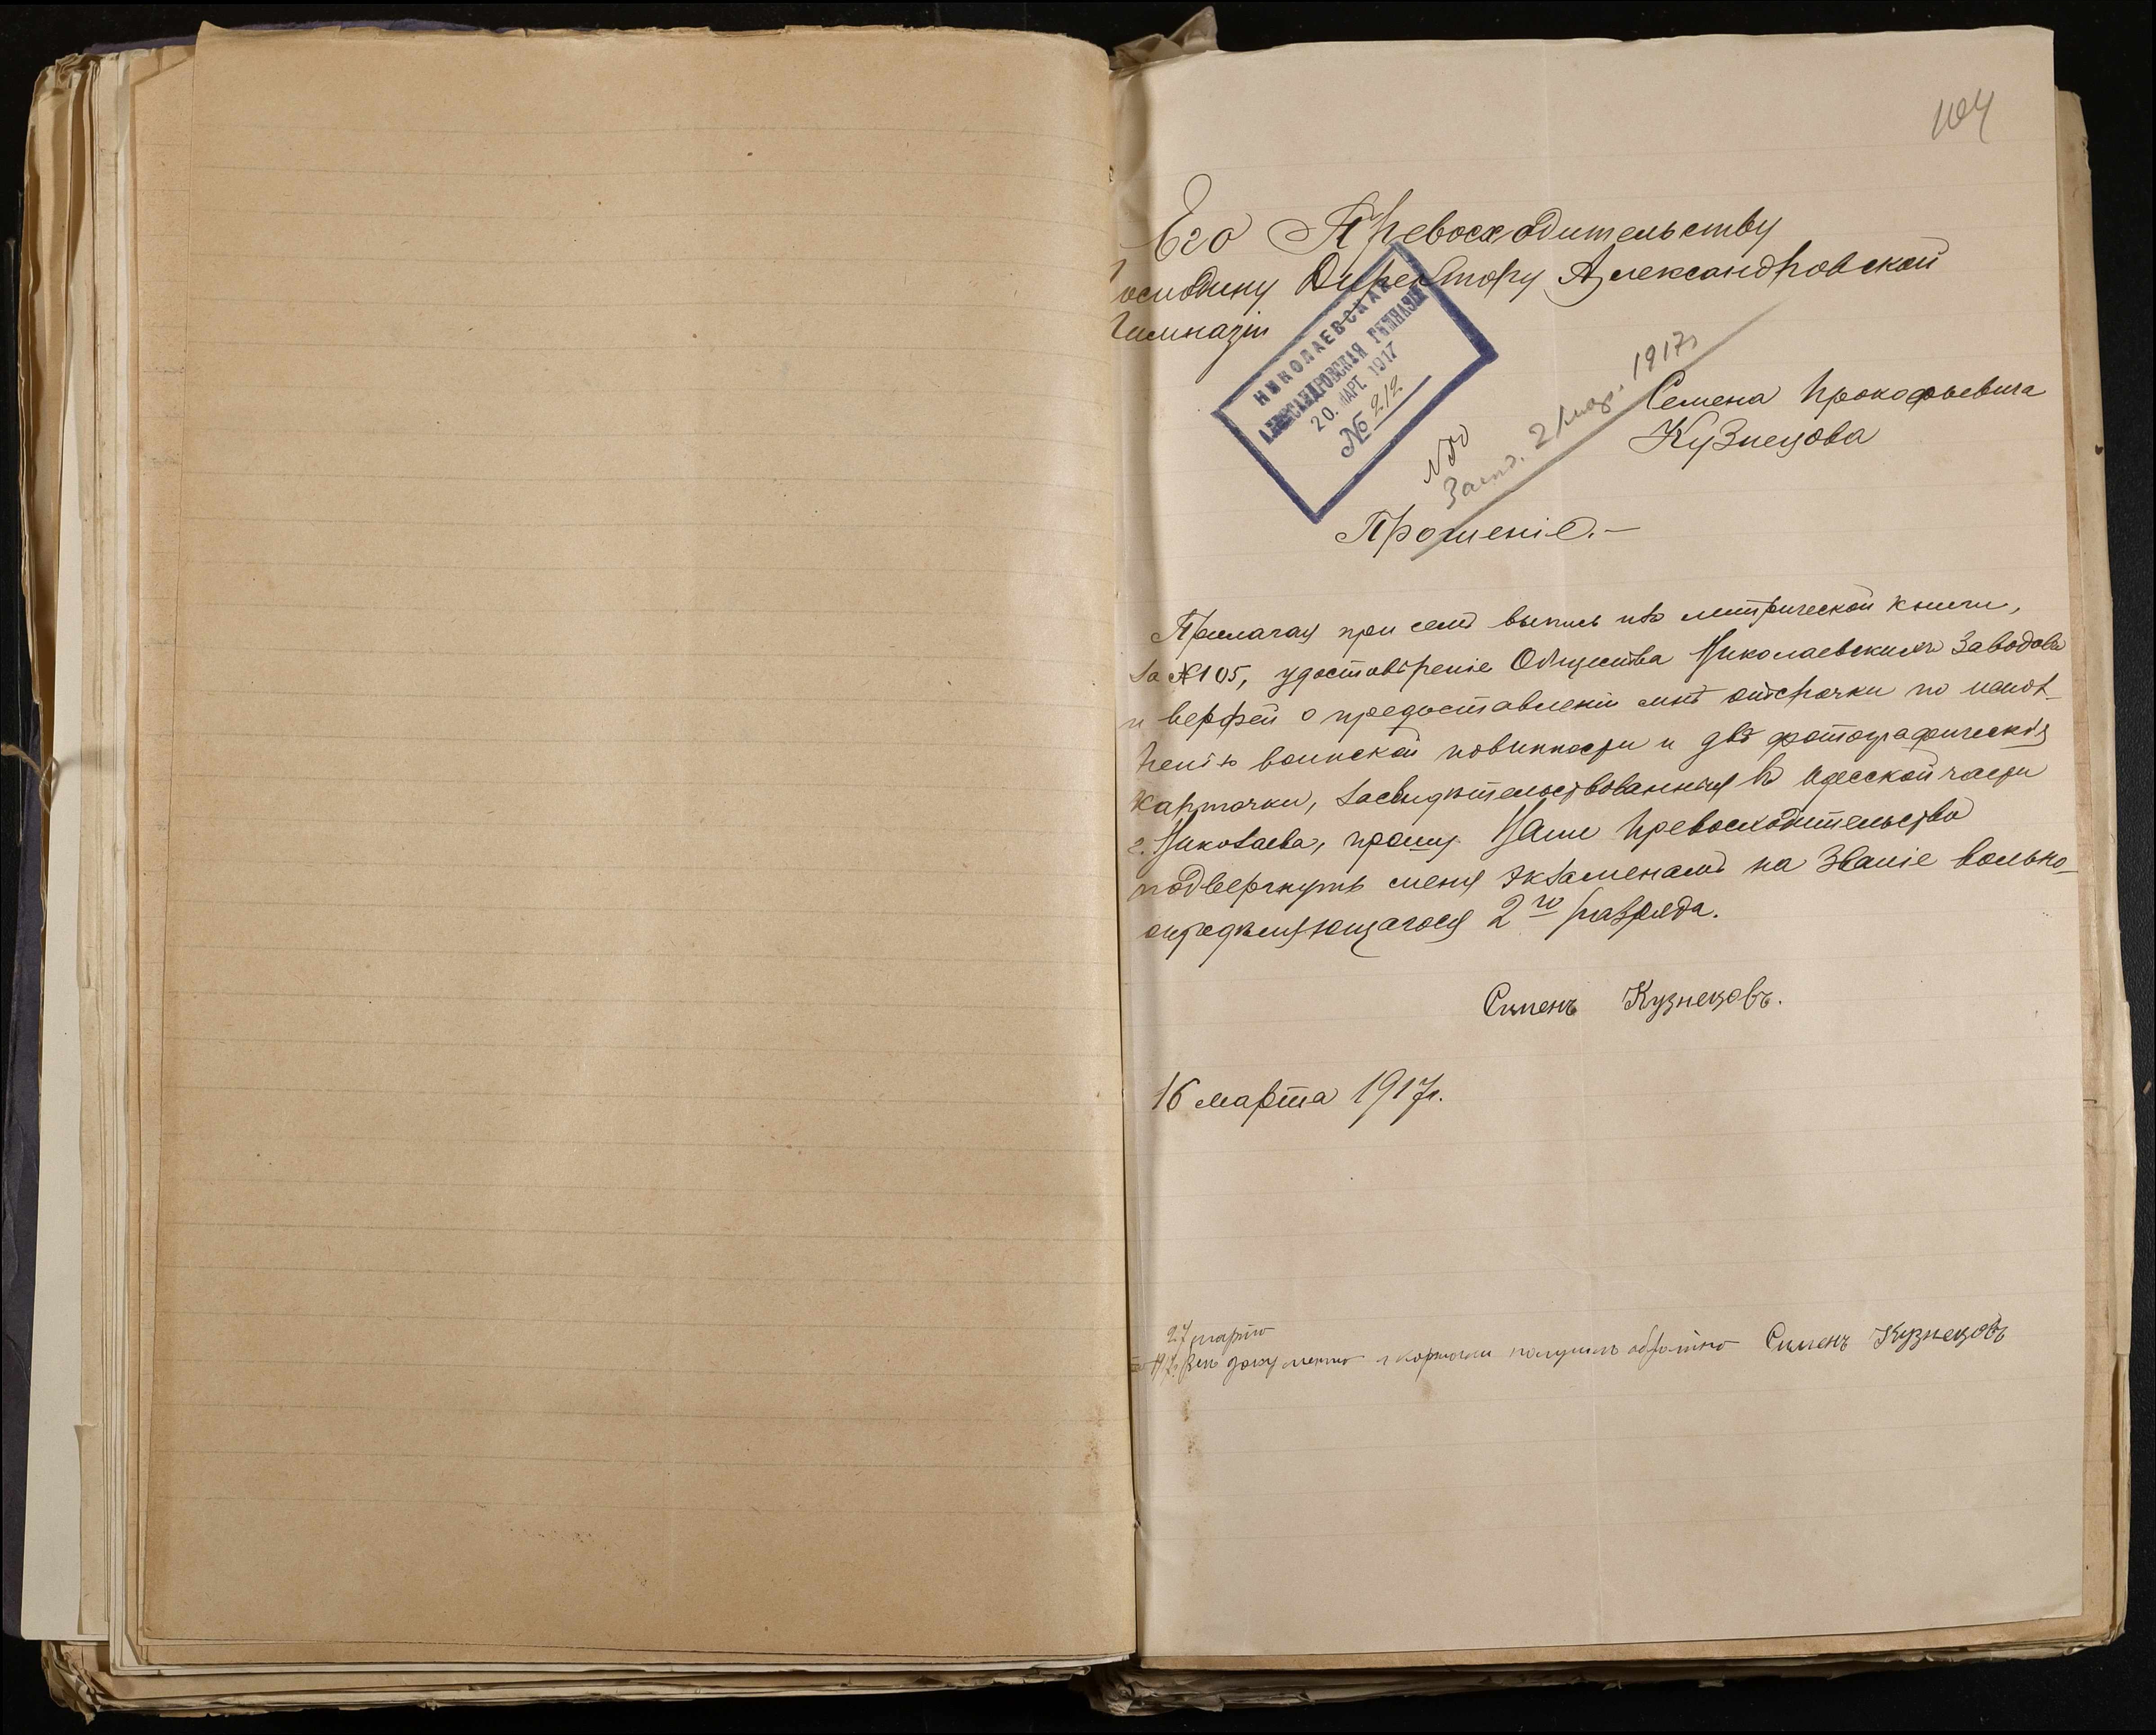 104
Его Превосходительству
Господину Директору Александровской
Гимназіи
НИКОЛАЕВСКАЯ
АЛЕКСАНДРОВСКАЯ ГИМНАЗІЯ
20. МАРТ. 1917
№ 212
1917г
Семена Прокофьевича
Кузнецова
Прошеніе.—
Прилагая при семъ выпись изъ метрической книги,
за №105, удостовѣреніе Общества Николаевскихъ Заводовъ
и верфей о предоставленіи мнѣ отсрочки по испол-
ненію воинской повинности и двѣ фотографическія
карточки, засвидѣтельствованныя въ Одесской части
г. Николаева, прошу Ваше Превосходительство
подвергнуть меня экзаменамъ на званіе вольно-
опредѣляющагося 2го разряда.
Семенъ Кузнецовъ.
16 марта 1917г.
27 марта
1917г. Всѣ документы и карточки получилъ обратно Семенъ Кузнецовъ